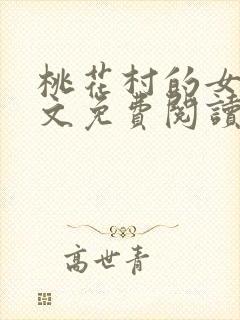 桃花村的女
文免費閱讀
高世青